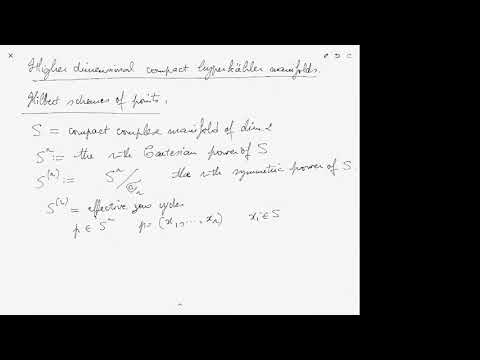 Higher dimensional compact hyperkähler manifolds.
Hilbert schemes of points.
S = compact complex manifold of dim 2
S^r := the r-th Cartesian power of S
S^(r) := S^r/𝔖_r the r-th symmetric power of S
S^(r) = effective zero cycles
p ∈ S^r p = (x_1, ..., x_r) x_i ∈ S